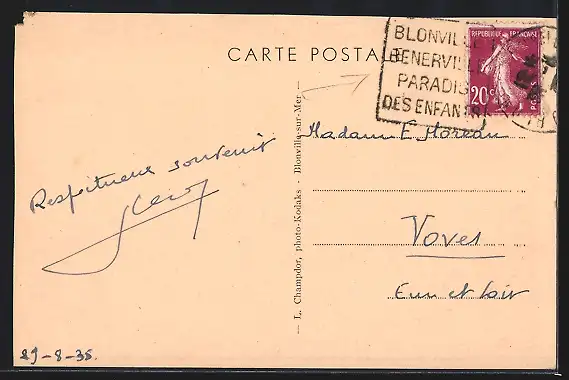 CARTE POSTALE
BLONVILLE
BENERVILLE
PARADIS
DES ENFANTS
REPUBLIQUE FRANÇAISE
20c
POSTES
Madame E. Moreau
Respectueux souvenir
Voves
Eure et Loir
— L. Champdor, photo-Kodaks - Blonville-sur-Mer —
29-8-35.